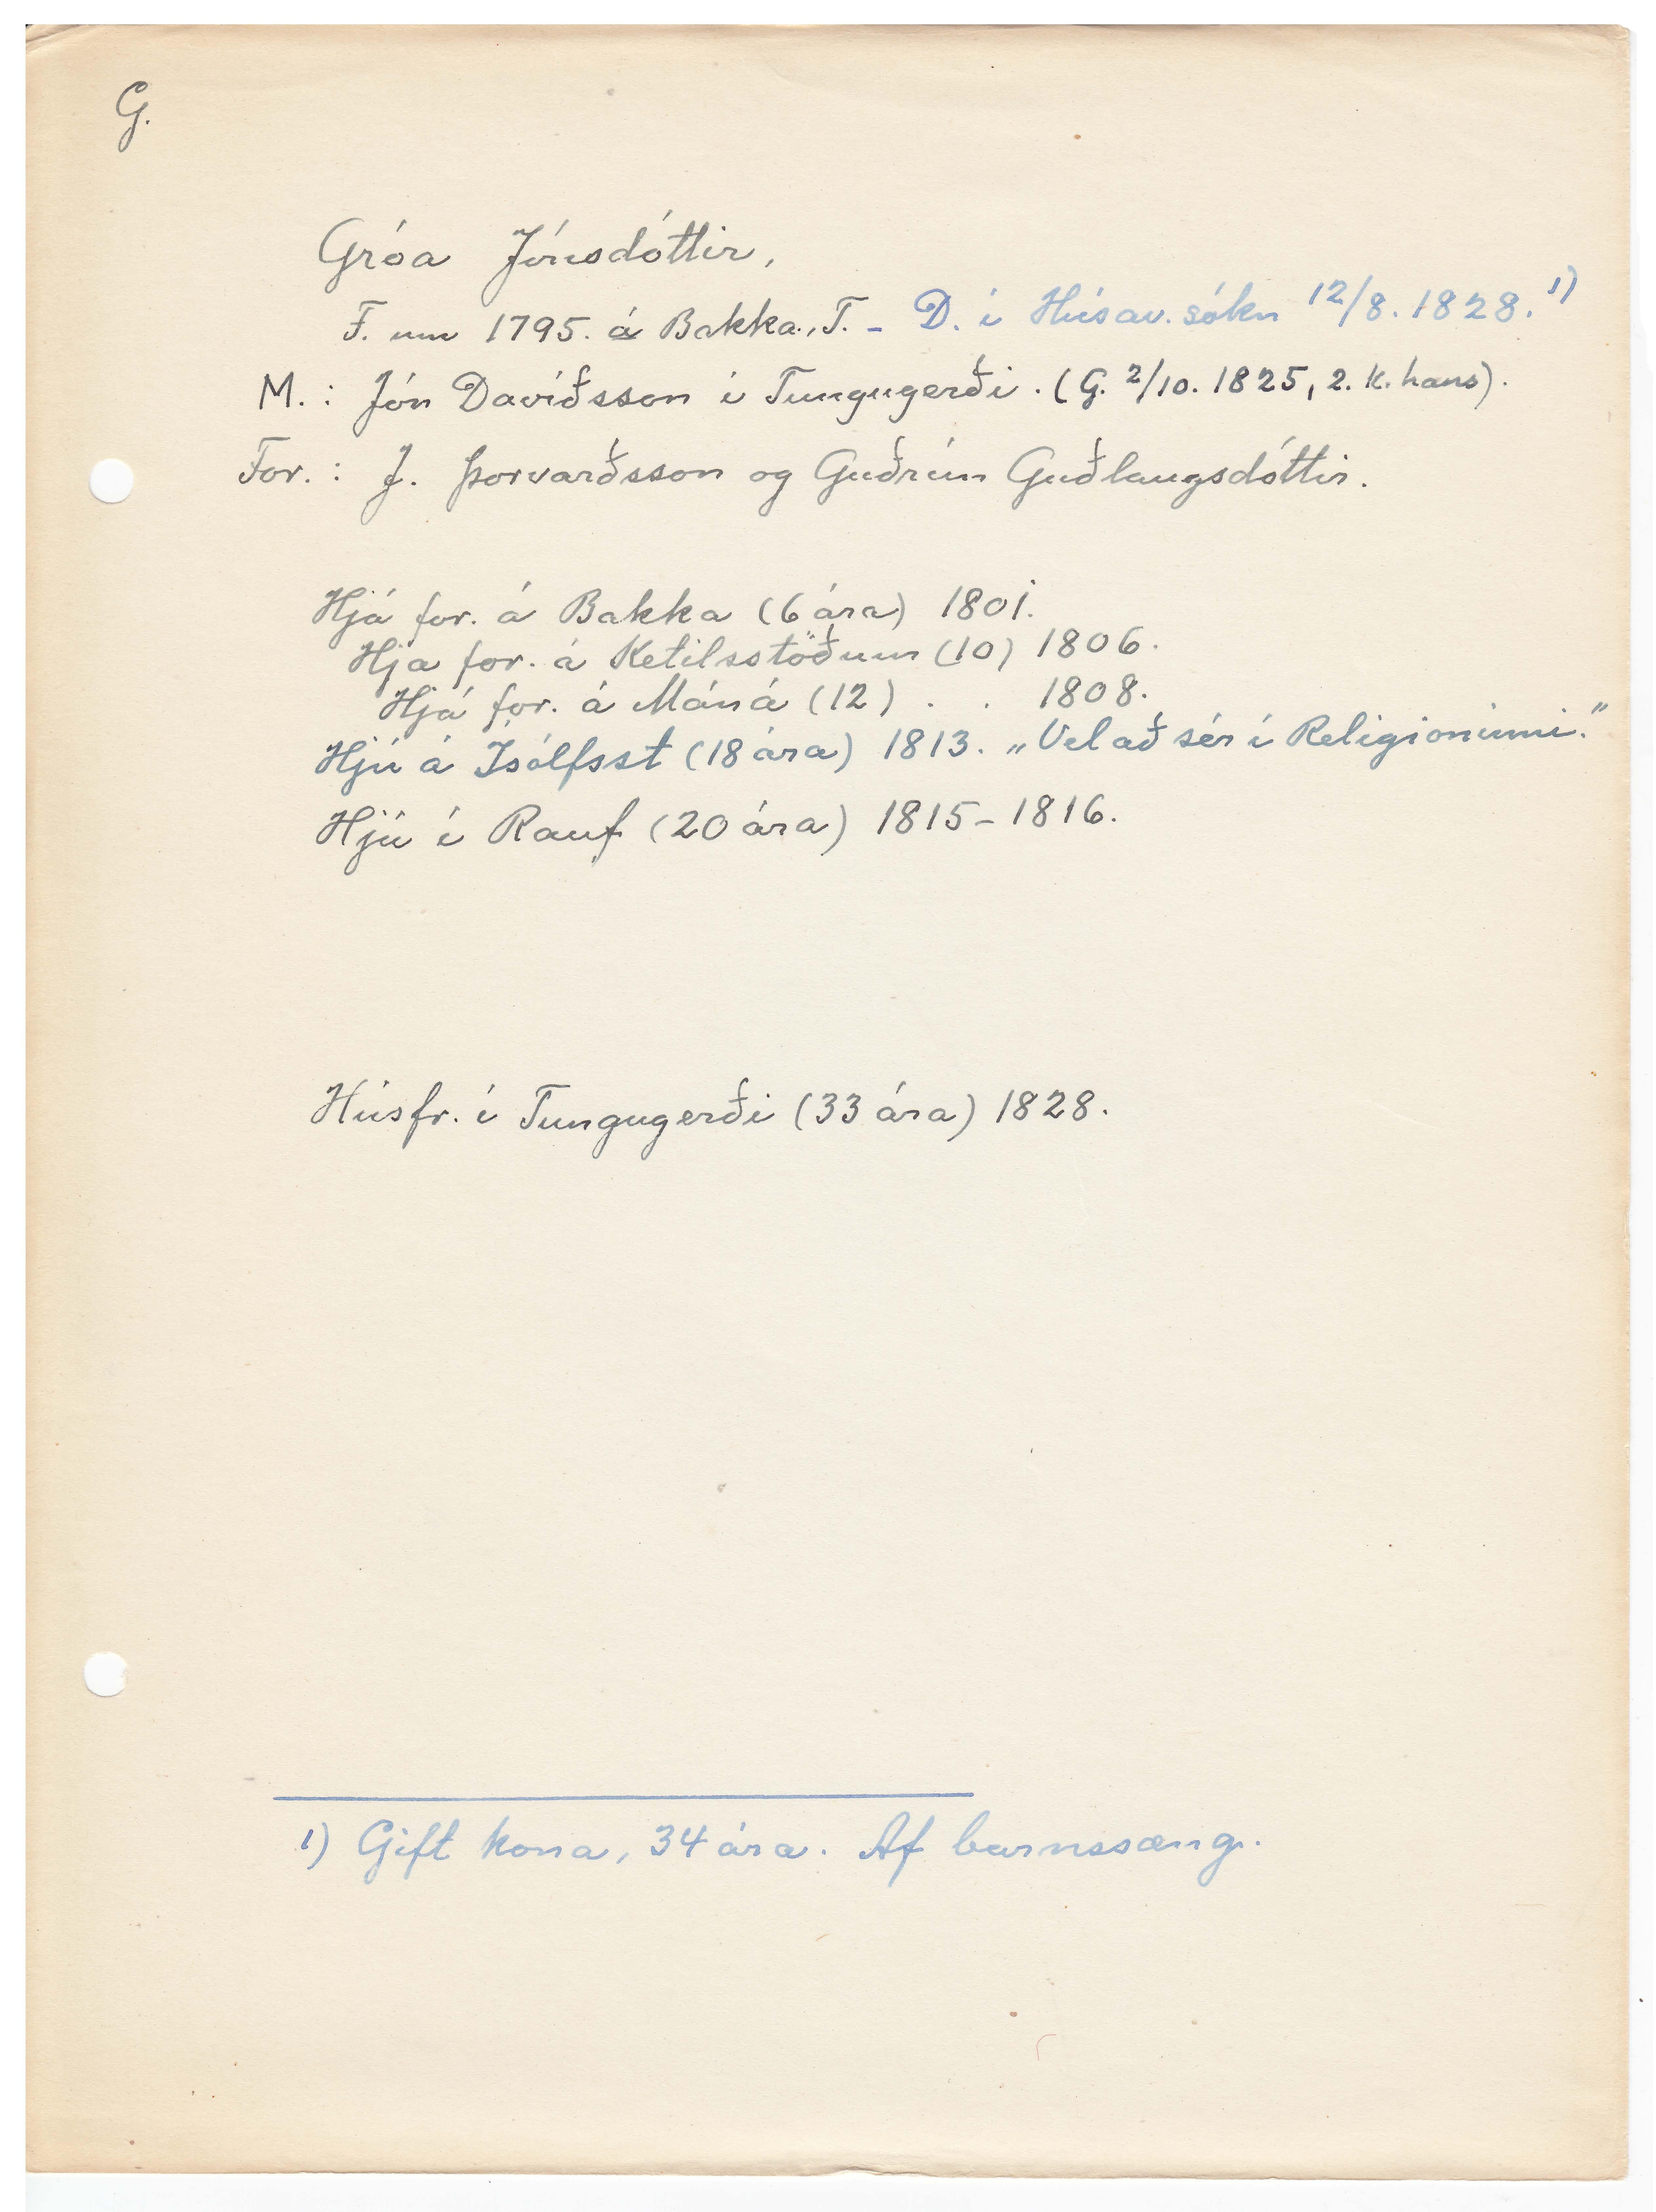 G.
Gróa Jónsdóttir,
F. um 1795. á Bakka., T. - D. í Húsav. sókn 12/8. 1828. 1)
M. : Jón Davíðsson í Tungugerði. (G. 2/10. 1825, 2. k. hans).
For. : J. Þorvarðsson og Guðrún Guðlaugsdóttir.
Hjá for. á Bakka (6 ára) 1801.
Hja for. á Ketilsstöðum (10) 1806.
Hjá for. á Máná (12) . . 1808.
Hjú á Ísólfsst (18 ára) 1813. „Vel að sér í Religioninni."
Hjú í Rauf (20 ára) 1815-1816.
Húsfr. í Tungugerði (33 ára) 1828.
1) Gift kona, 34 ára. Af barnssæng.